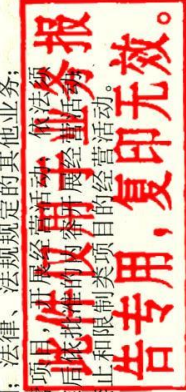 ；法律、法规规定的其他业务；
项目，开展经营活动，依法须
后依批准的内容开展经营活动
止和限制类项目的经营活动。
此件仅用于业务报
告专用，复印无效。